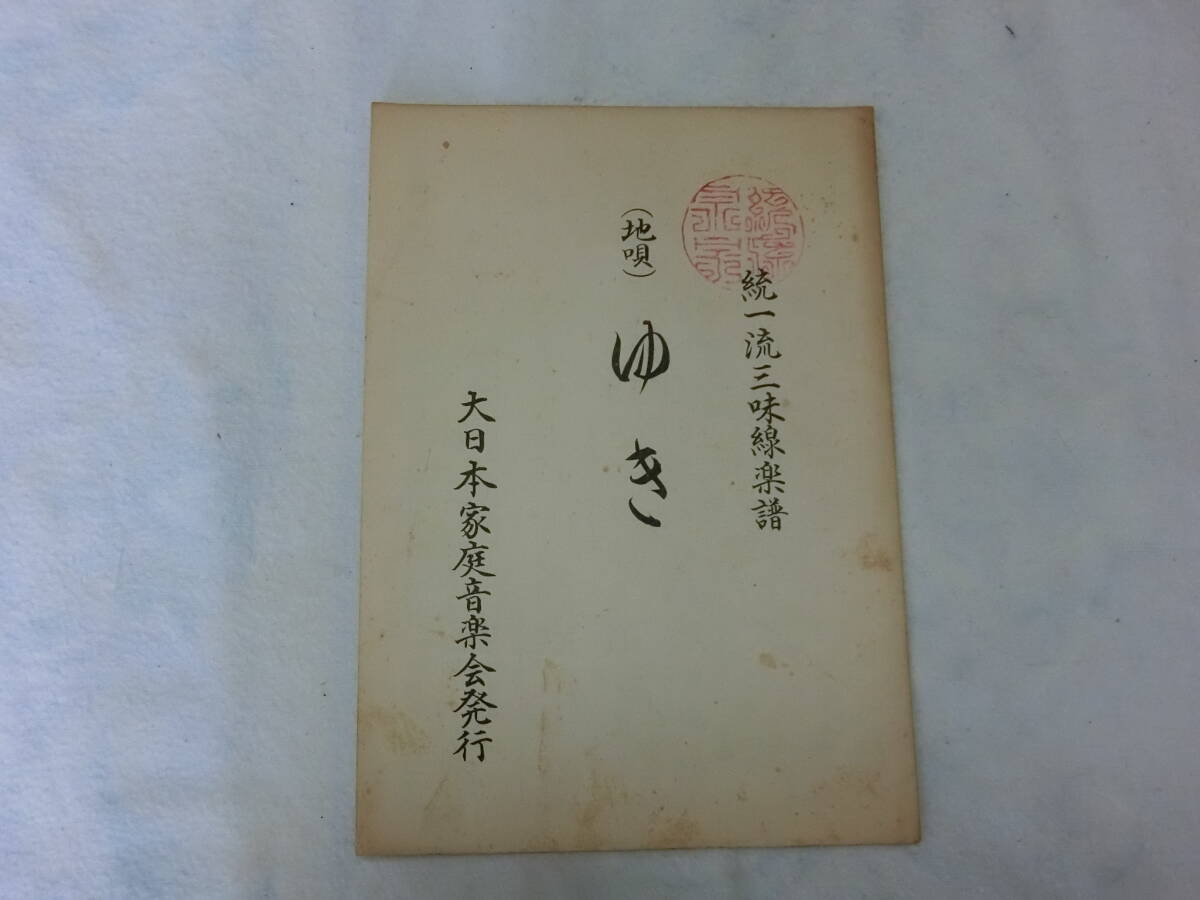 統一流三味線楽譜
(地唄) ゆき
大日本家庭音楽会発行